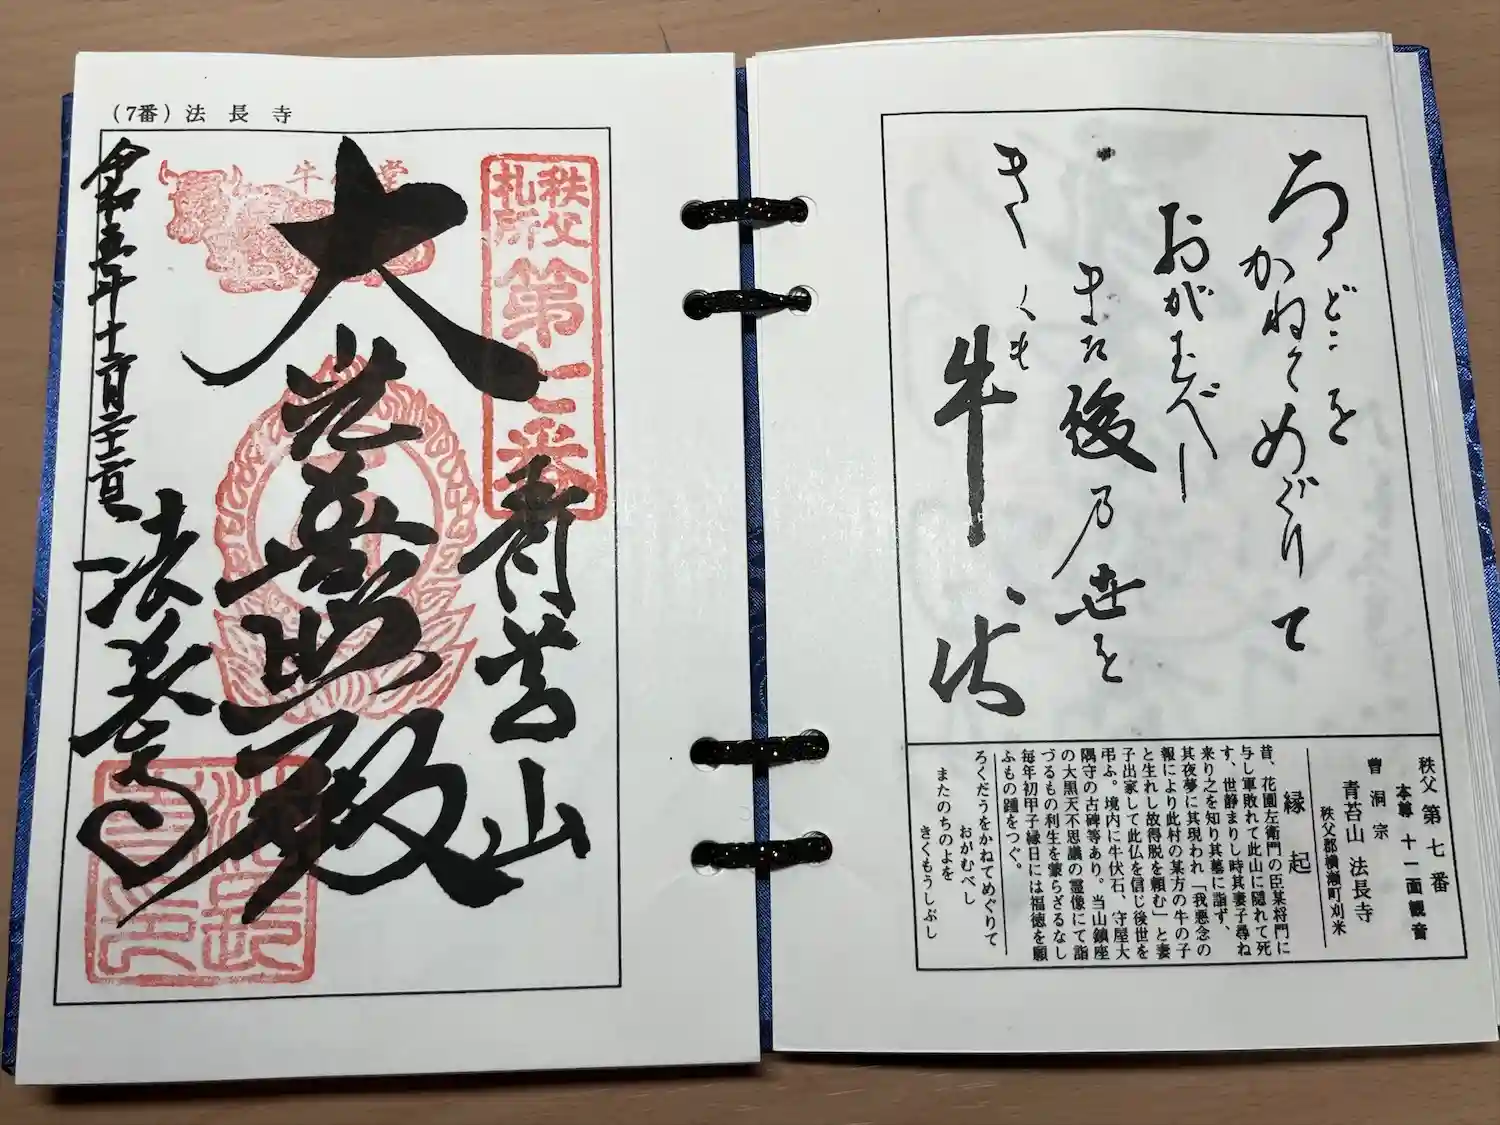 ろくどうを
かねてめぐりて
おがむべし
また後乃世を
きくも牛伏
秩父 第七番
本尊 十一面観音
曹洞宗
青苔山 法長寺
秩父郡横瀬町刈米
縁起
昔、花園左衛門の臣某将門に
与し軍敗れて此山に隠れて死
す、世静まりし時其妻子尋ね
来り之を知り其墓に詣ず、
其夜夢に其現われ「我悪念の
報により此村の某方の牛の子
と生れし故得脱を頼む」と妻
子出家して此仏を信じ後世を
弔ふ。境内に牛伏石、守屋大
隅守の古碑等あり。当山鎮座
の大黒天不思議の霊像にて詣
づるもの利生を蒙らざるなし
毎年初甲子縁日には福徳を願
ふもの踵をつぐ。
ろくだうをかねてめぐりて
おがむべし
またのちのよを
きくもうしぶし
（7番）法長寺
秩父札所
第七番
青苔山
牛 堂
大光普照殿
令和五年十二月
法長寺